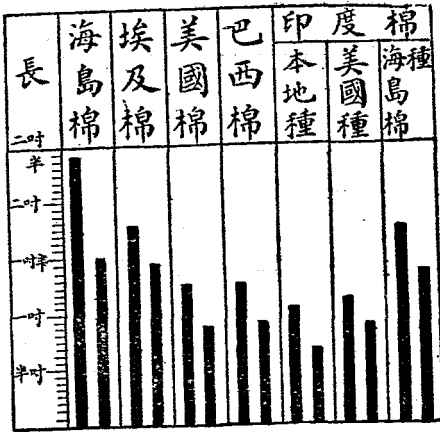 長
海島棉
埃及棉
美國棉
巴西棉
印度棉
本地種
美國種
海島棉種
二吋半
二吋
一吋半
一吋
半吋